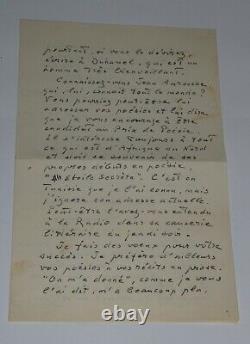 pourtant, si vous le désirez,
écrire à Duhamel, qui est un
homme très bienveillant.
Connaissez-vous Jean
qui, lui, connaît tout le monde ?
Vous pourriez peut-être lui
adresser vos poésies et lui dire
que je vous encourage à être
candidat au Prix de Poésie.
Il s'intéresse toujours à tout
ce qui est d'Afrique du Nord
et se souvenir de ses
propres débuts en poésie.
Étoile Secrète". C'est en
Tunisie que je l'ai connu, mais
j'ignore son adresse actuelle.
Peut-être l'avez-vous entendu
à la Radio dans sa causerie
littéraire du jeudi soir.
Je fais des vœux pour votre
succès. Je préfère d'ailleurs
vos poésies à vos récits en prose.
"On m'a donné", comme je vous
l'ai dit, m'a beaucoup plu.
ebay